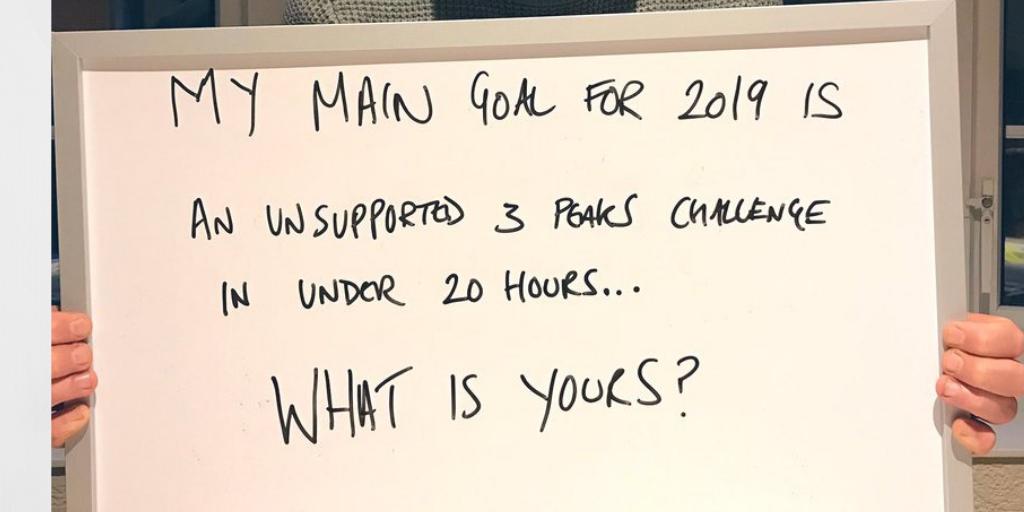 MY MAIN GOAL FOR 2019 IS
AN UNSUPPORTED 3 PEAKS CHALLENGE
IN UNDER 20 HOURS...
WHAT IS YOURS?